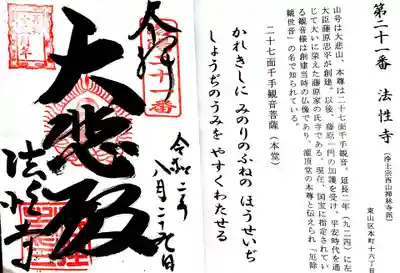 第二十一番　法性寺
（浄土宗西山禅林寺派）
東山区本町十六丁目
山号は大悲山、本尊は二十七面千手観音。延長二年（九二四）に左
大臣藤原忠平が創建。以後、藤原一門の加護を受け、平安時代を通
じて大いに栄えた藤原家の氏寺である。現在、国宝に指定されてい
る観音様は創建当時の仏像であり、灌頂堂の本尊と伝えられ「厄除
観世音」の名で知られている。
二十七面千手観音菩薩（本堂）
かれきしに みのりのふねの ほうせいぢ
しょうぢのうみを やすくわたせる
奉拝
二十一番
大悲殿
法性寺
令和二年
八月二十九日